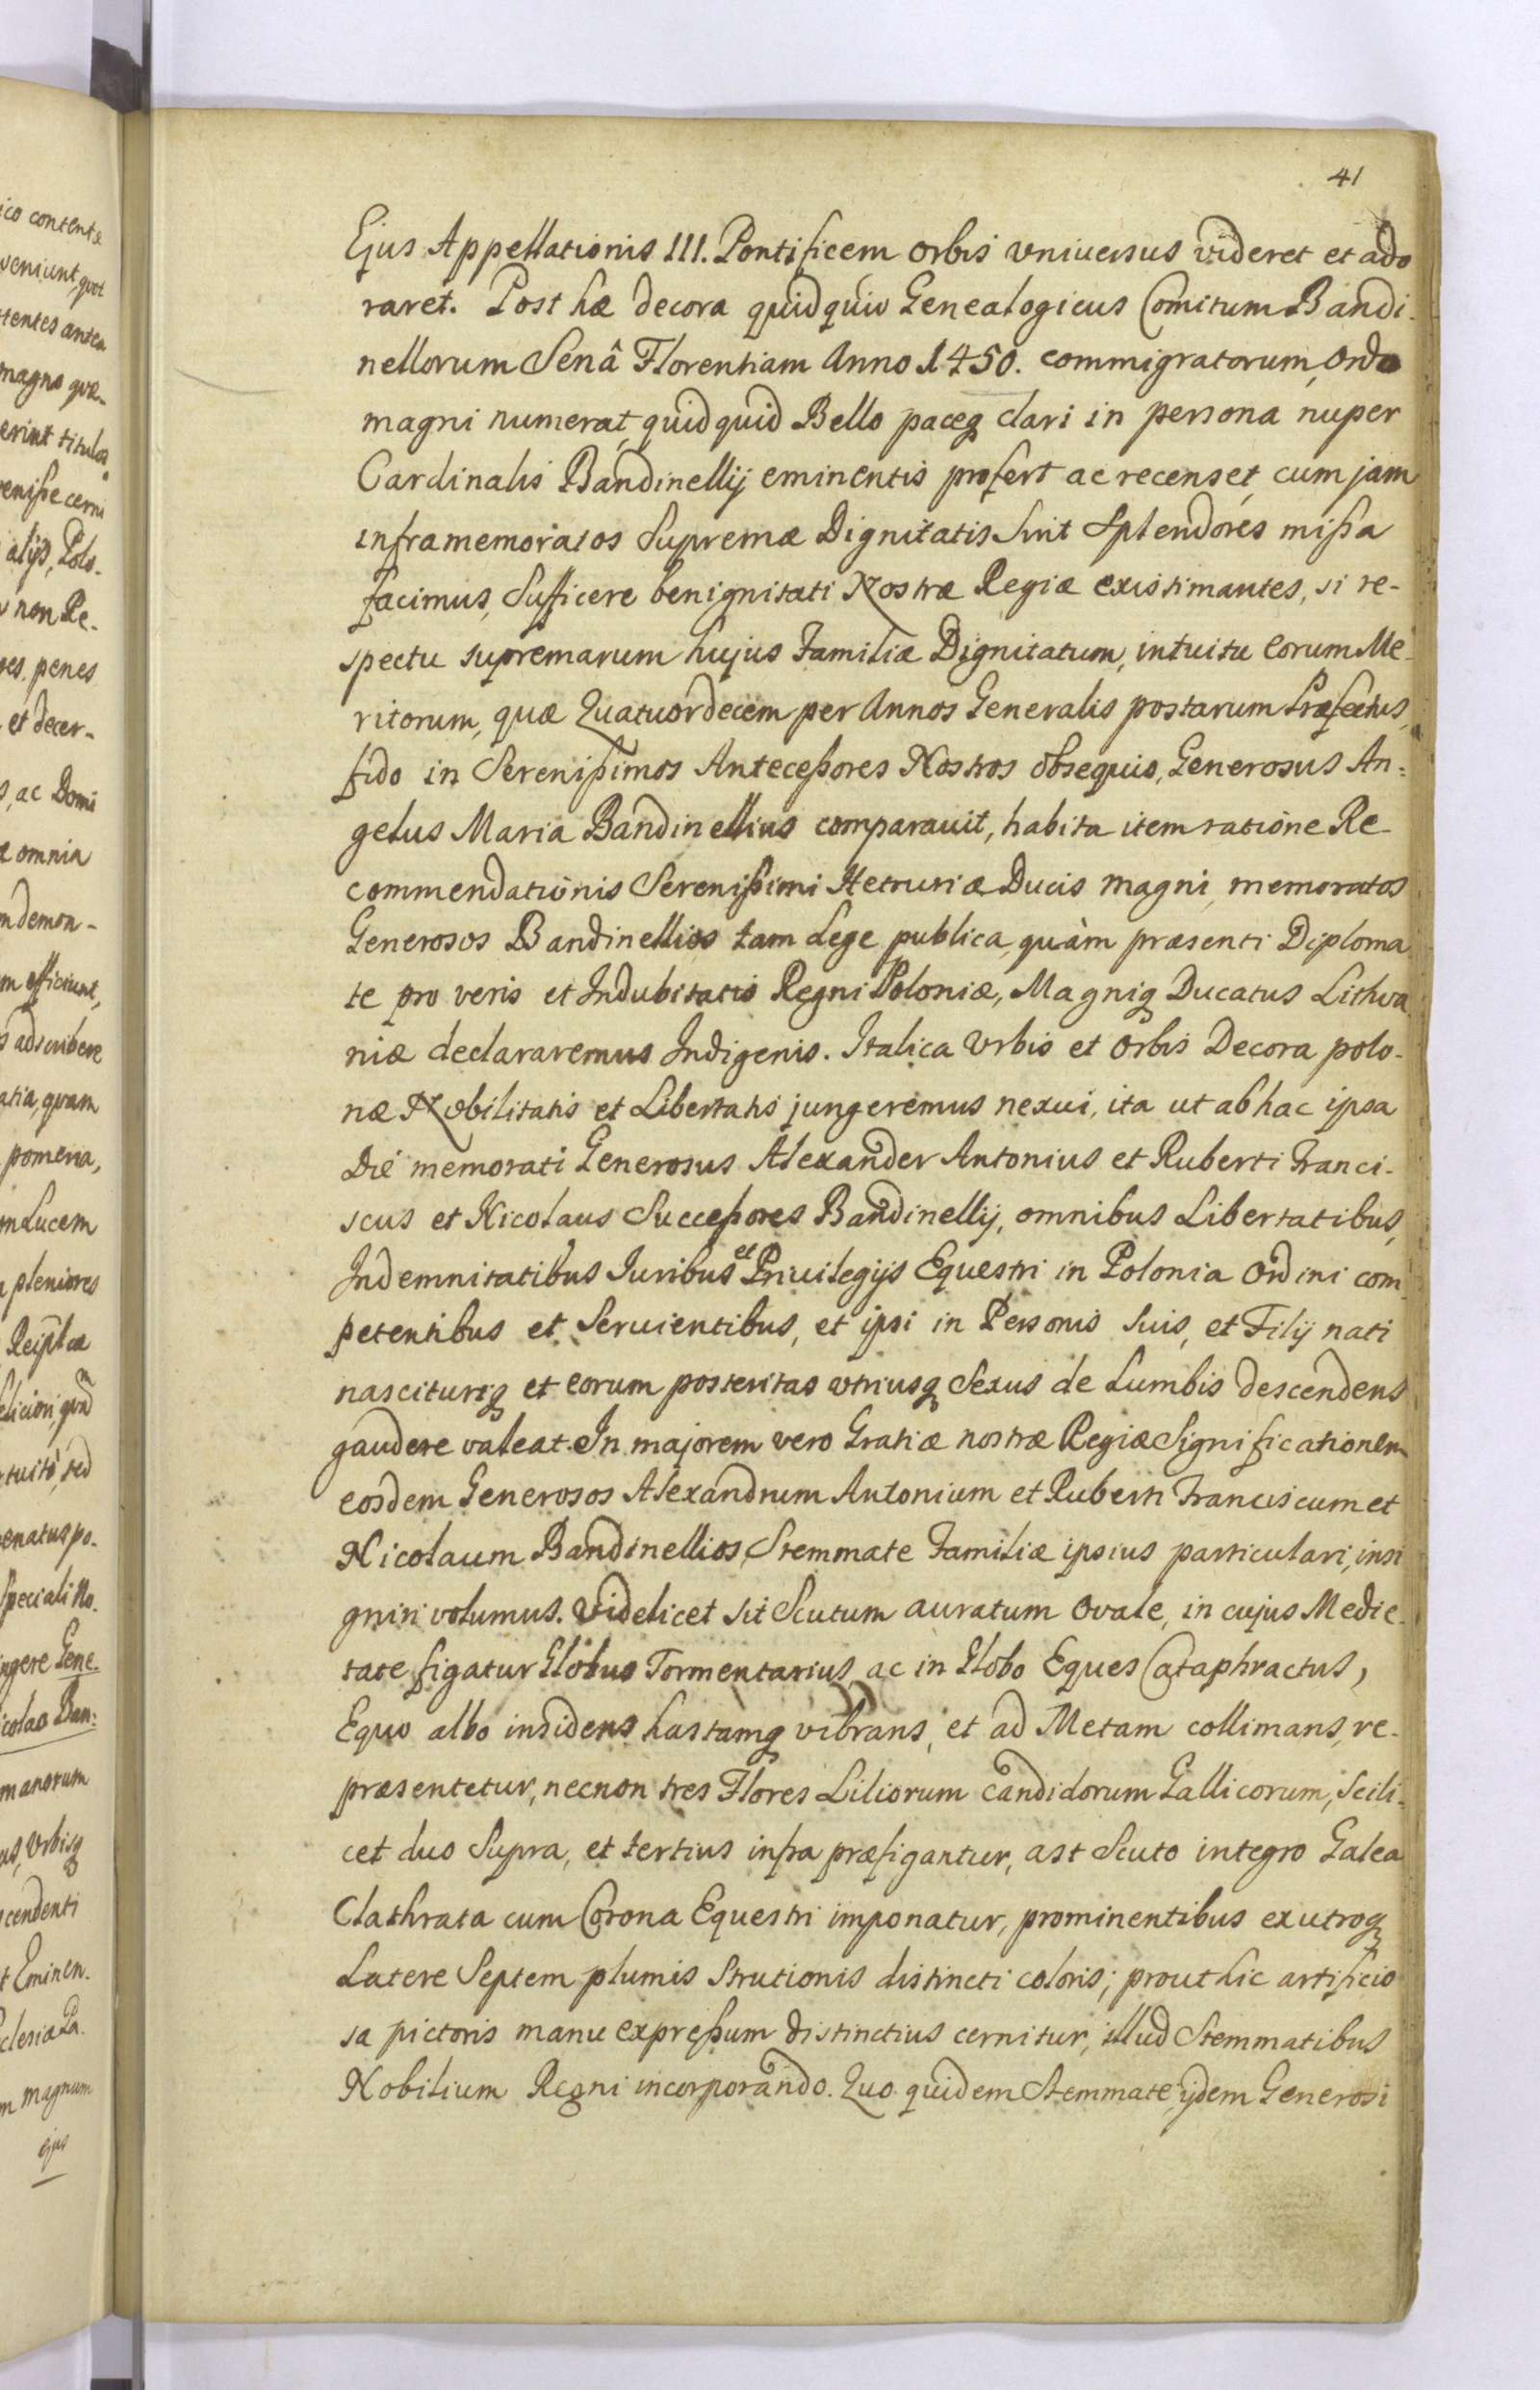 41
Ejus Appellationis III. Pontificem orbis vniuersus videret et ado
raret. Post hæ decora quidquid Genealogicus Comitum Bandi-
nellorum Senâ Florentiam Anno 1450. commigratorum, Ordo
magni numerat, quidquid Bello paceq clari in persona nuper
Cardinalis Bandinellij eminentis profert ac recenset, cum jam
inframemoratos Supremæ Dignitatis sint Splendores missa
facimus, Sufficere benignitati Nostræ Regiæ existimantes, si re-
spectu supremarum hujus Familiæ Dignitatum, intuitu eorum Me-
ritorum, quæ Quatuordecem per Annos Generalis postarum Præfectus,
fido in Serenissimos Antecessores Nostros obsequio, Generosus An=
gelus Maria Bandinellius comparauit, habita item ratione Re-
commendationis Serenissimi Hetruriæ Ducis magni, memoratos
Generosos Bandinellios tam Lege publica, quàm præsenti Diploma
te pro veris et Indubitatis Regni Poloniæ, Magniq Ducatus Lithva
niæ declararemus Indigenis. Italica Vrbis et Orbis Decora polo-
næ Nobilitatis et Libertatis jungeremus nexui, ita ut ab hac ipsa
Die memorati Generosus Alexander Antonius et Ruberti Franci-
scus et Nicolaus Successores Bandinellij, omnibus Libertatibus,
Indemnitatibus Iuribus et Priuilegijs Equestri in Polonia Ordini com
petentibus et Seruientibus, et ipsi in Personis suis, et Filij nati
nascituriq et eorum posteritas vtriusq Sexus de Lumbis descendens
gaudere valeat. In majorem vero Gratiæ nostræ Regiæ Significationem
eosdem Generosos Alexandrum Antonium et Ruberti Franciscum et
Nicolaum Bandinellios, Stemmate Familiæ ipsius particulari, insi
gniri volumus. Videlicet sit Scutum auratum Ovale, in cujus Medie-
tate figatur Globus Tormentarius, ac in Globo Eques Cataphractus,
Equo albo insidens hastamq vibrans, et ad Metam collimans, re-
præsentetur, necnon tres Flores Liliorum candidorum Gallicorum, Scili-
cet duo Supra, et tertius infra præfigantur, ast Scuto integro Galea
Clathrata cum Corona Equestri imponatur, prominentibus ex utroq
Latere Septem plumis Strutionis distincti coloris; prout hic artificio
sa pictoris manu expressum distinctius cernitur, illud Stemmatibus
Nobilium Regni incorporando. Quo quidem Stemmate ijdem Generosi